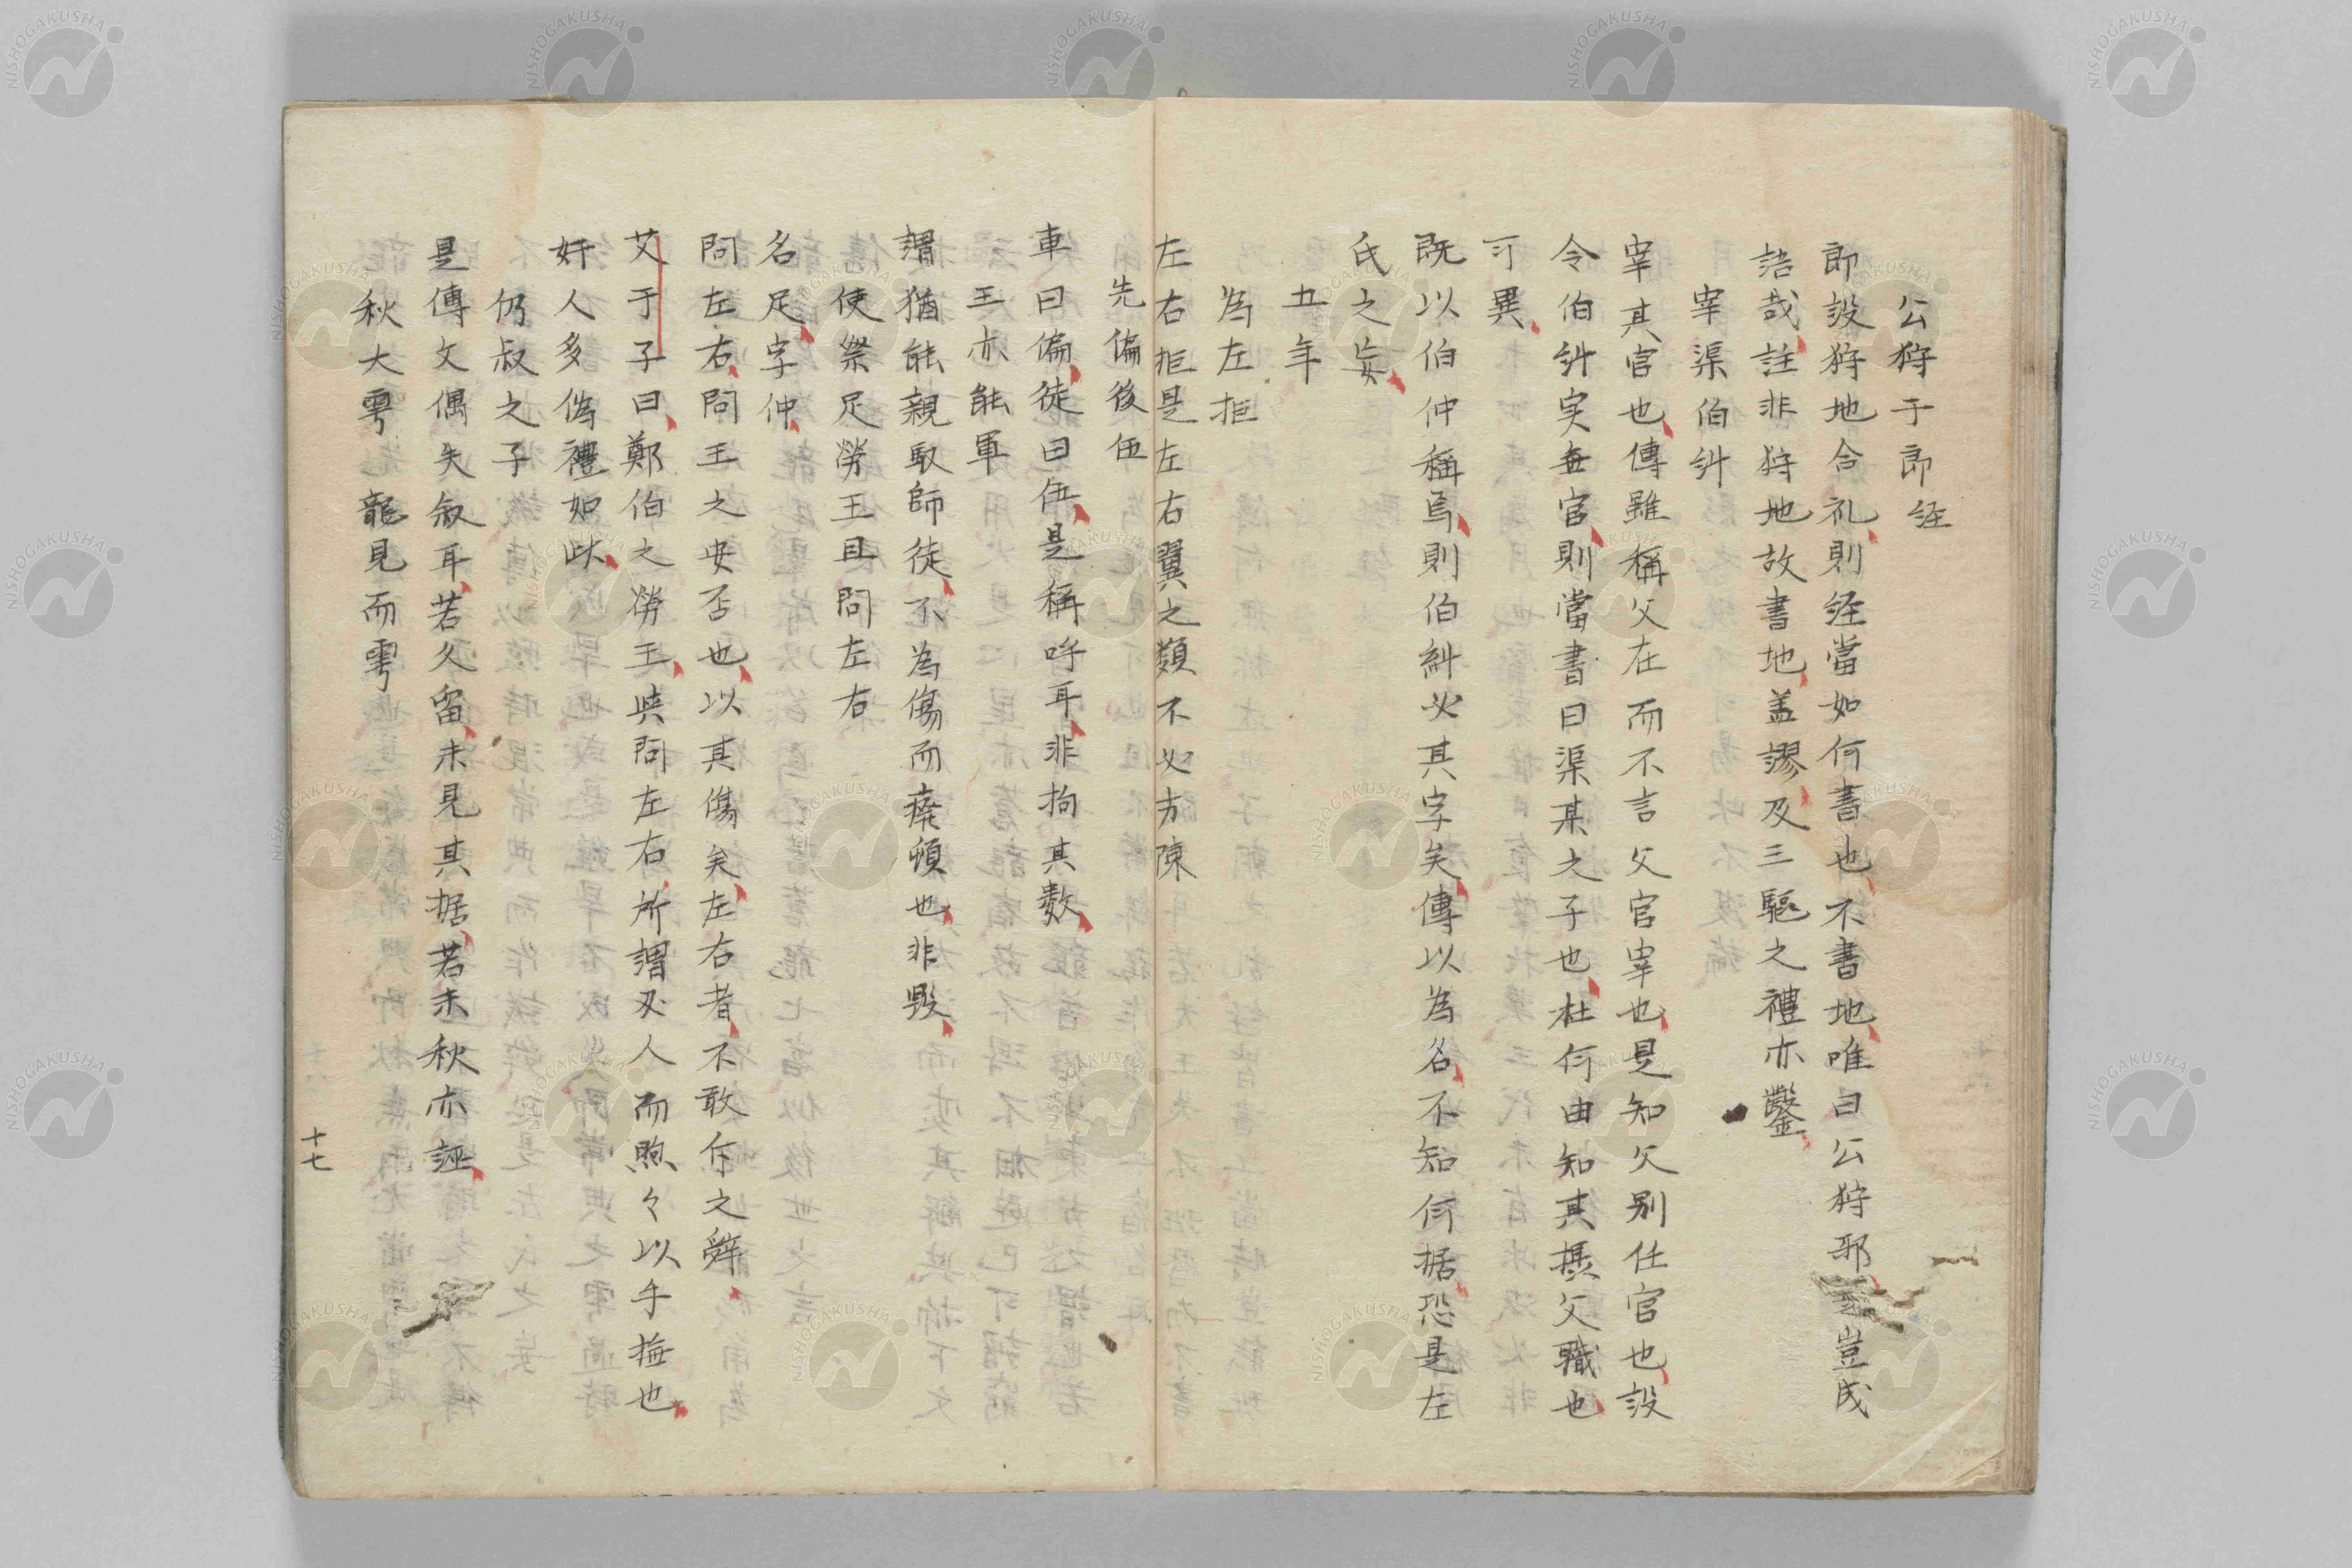 公狩于郎経
郎設狩地合礼則経當如何書也不書地唯曰公狩耶豈成
語哉註非狩地故書地盖謬及三驅之禮亦鑿
宰渠伯糾
宰其官也傳雖稱父在而不言父官宰也是知父别任官也設
令伯糾実無官則當書曰渠某之子也杜何由知其摂父職也
可異
既以伯仲稱焉則伯糾必其字矣傳以為名不知何据恐是左
氏之妄
五年
為左拒
左右拒是左右翼之類不必方陳
先偏後伍
車曰偏徒曰伍是稱呼耳非拘其数
王亦能軍
謂猶能親馭師徒不為傷而瘘頓也非毀
使祭足勞王且問左右
名足字仲
問左右問王之安否也以其傷矣左右者不敢斥之辭
艾于子曰鄭伯之勞王與問左右所謂刃人而煦々以手撫也
奸人多偽禮如此
仍叔之子
是傳文偶失叙耳若久留未見其据若未秋亦誣
秋大雩龍見而雩
十七
NISHOGAKUSHA